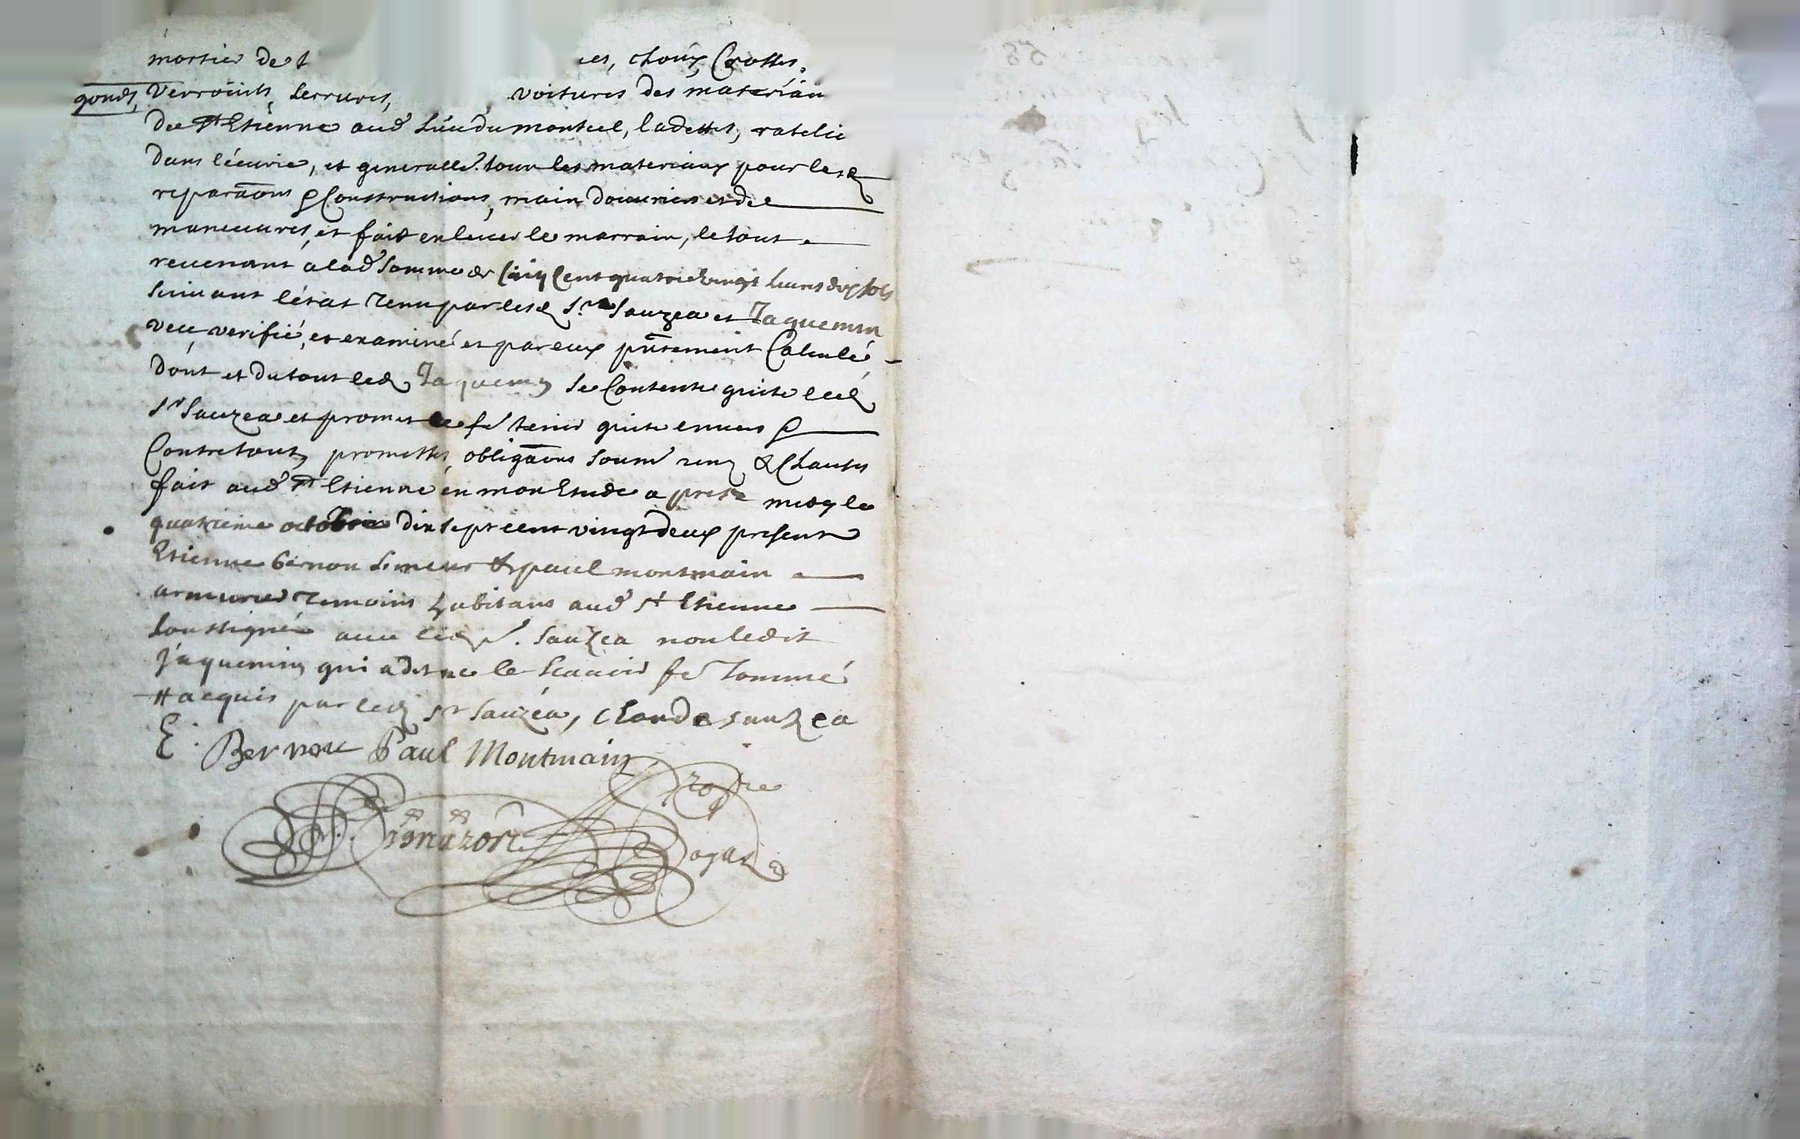 mortier de t ces, choux Crottes,
gonds, verroüils, serrures, voitures des materiau
de St Etienne aud lieu du monteil, ladettes, ratelie
dans lécurie, et generalle. tour les materiaux pour lesd
reparãons & Constructions, main douvriers et de
maneuvres, et fait enlever le marrain, le tout
revenant a lad somme de Cinq Cent quatre vingt livres dix sols
suivant létat tenu par lesd Srs Sauzea et Jaquemin
veu, verifié, et examiné et par eux pñtement Calculé
dont et du tout led Jaquemin se Contente quite led
Sr Sauzea et promet le fe tenir quite envers &
Contre tous, promettes, obligãons soum renõ & Clauses
fait aud St Etienne en mon Etude apres midy le
quatrieme octobre dix sept cent vingt deux present
Etienne Bernou limeur & paul montmain
armurier temoins habitans aud St Etienne
soussignés avec led Sr. Sauzea non ledit
jaquemin qui a dit ne le scavoir fe sommé
acquis par led Sr Sauzéa, Claude sauzea
E. Bernou Paul Montmain